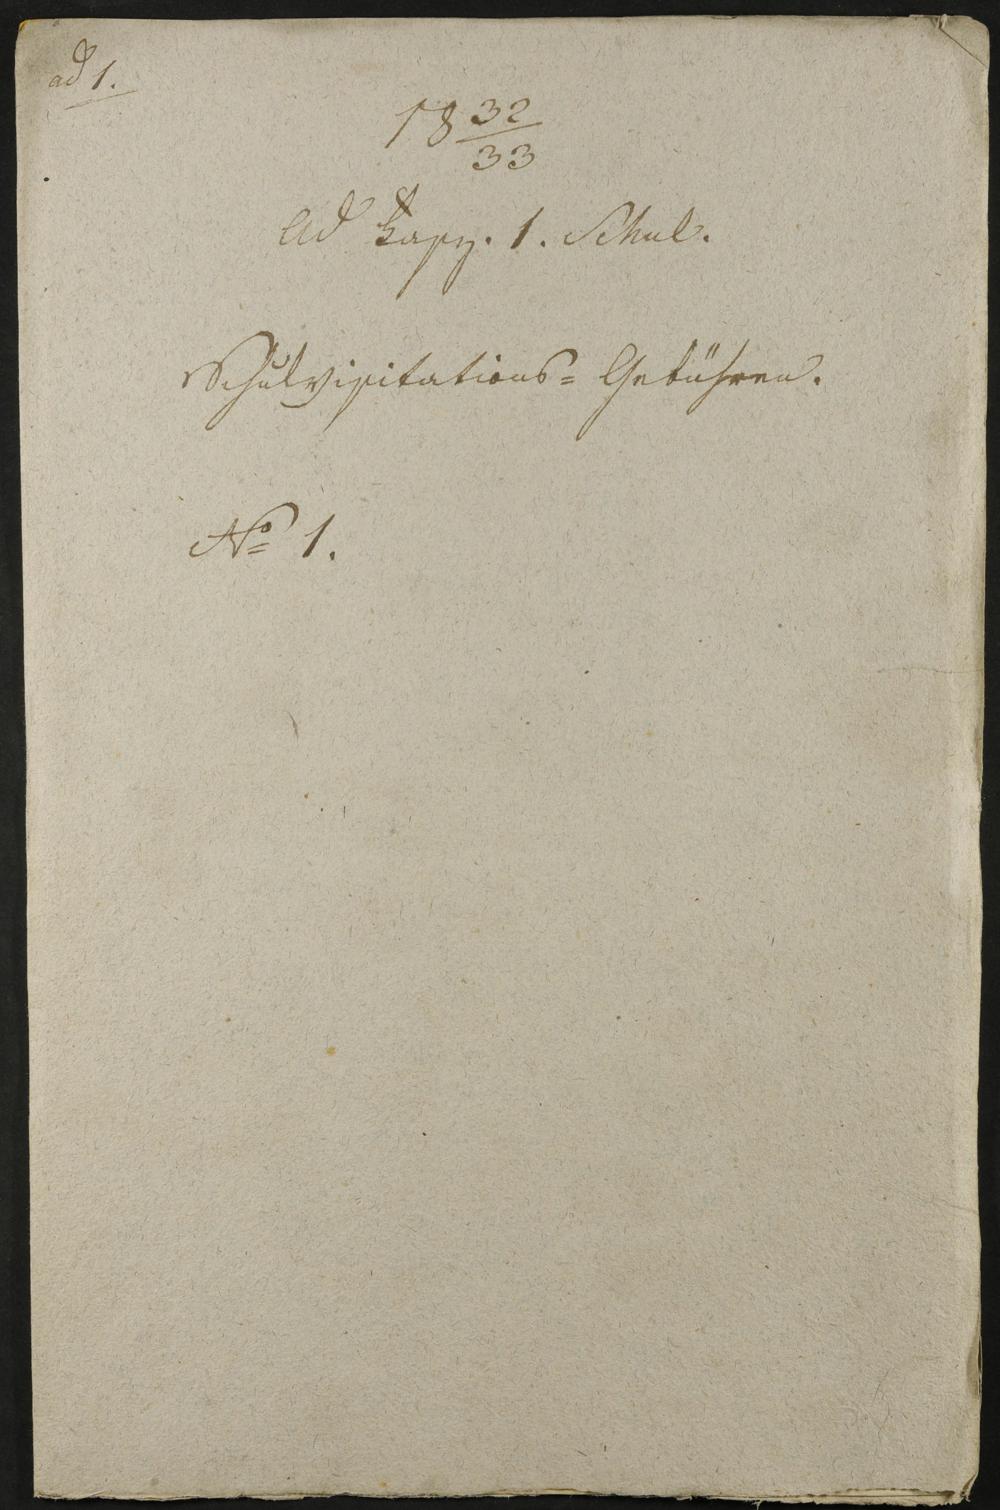 ad 1.
18 32/33
Ad Kap. 1. Schul.
Schulvisitations= Gebühren.
No 1.